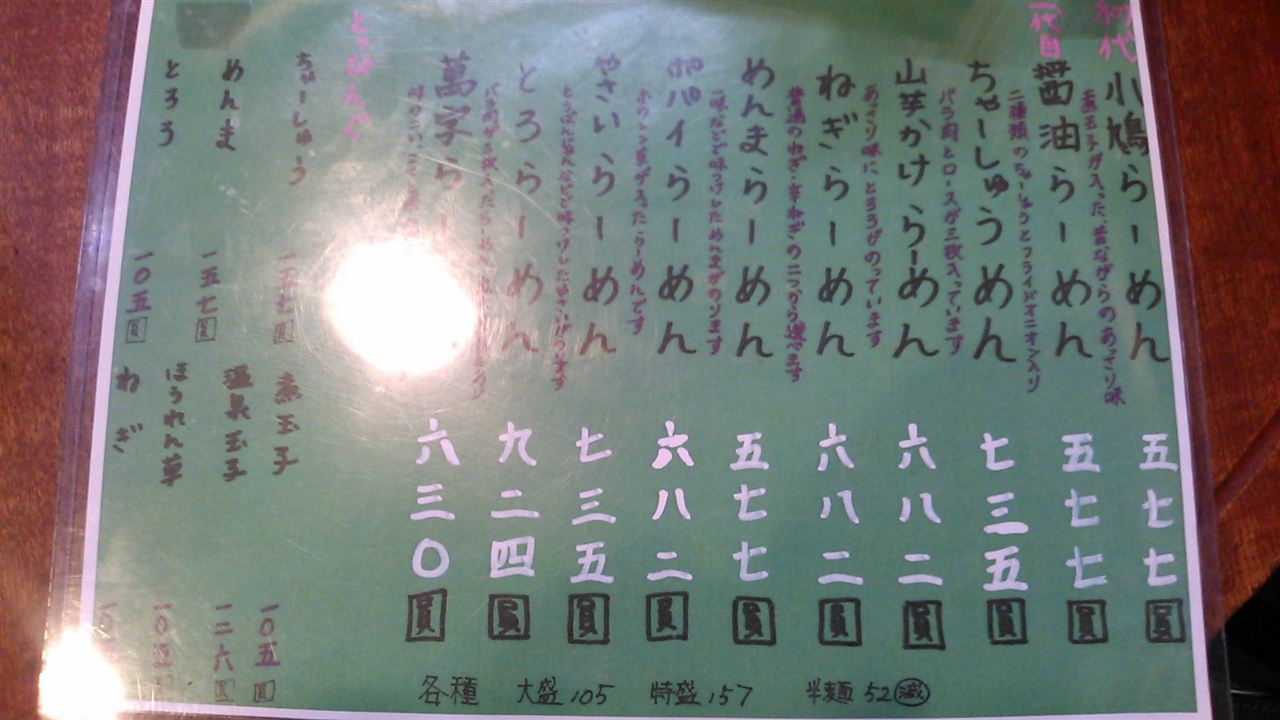 初代
小鳩らーめん 五七七圓
煮玉子が入った、昔ながらのあっさり味
二代目
醤油らーめん 五七七圓
二種類のちゃーしゅうとフライドオニオン入り
ちゃーしゅうめん 七三五圓
バラ肉とロースが三枚入っています
山芋かけらーめん 六八二圓
あっさり味にとろろがのっています
ねぎらーめん 六八二圓
普通のねぎ・玉ねぎの二つから選べます
めんまらーめん 五七七圓
一味などで味つけしためんまがのります
ポパイらーめん 六八二圓
ホウレン草が入ったらーめんです
やさいらーめん 七三五圓
とうばんじゃんなどで味つけしたやさいがのります
とろらーめん 九二四圓
バラ肉が三枚入ったらーめん
萬字らー 六三〇圓
味のこいこく
とっぴんぐ
ちゃーしゅう 一五七圓
煮玉子 一〇五圓
めんま 一五七圓
温泉玉子 一二六圓
とろろ 一〇五圓
ほうれん草 一〇五圓
ねぎ
各種 大盛105 特盛157 半麺52減